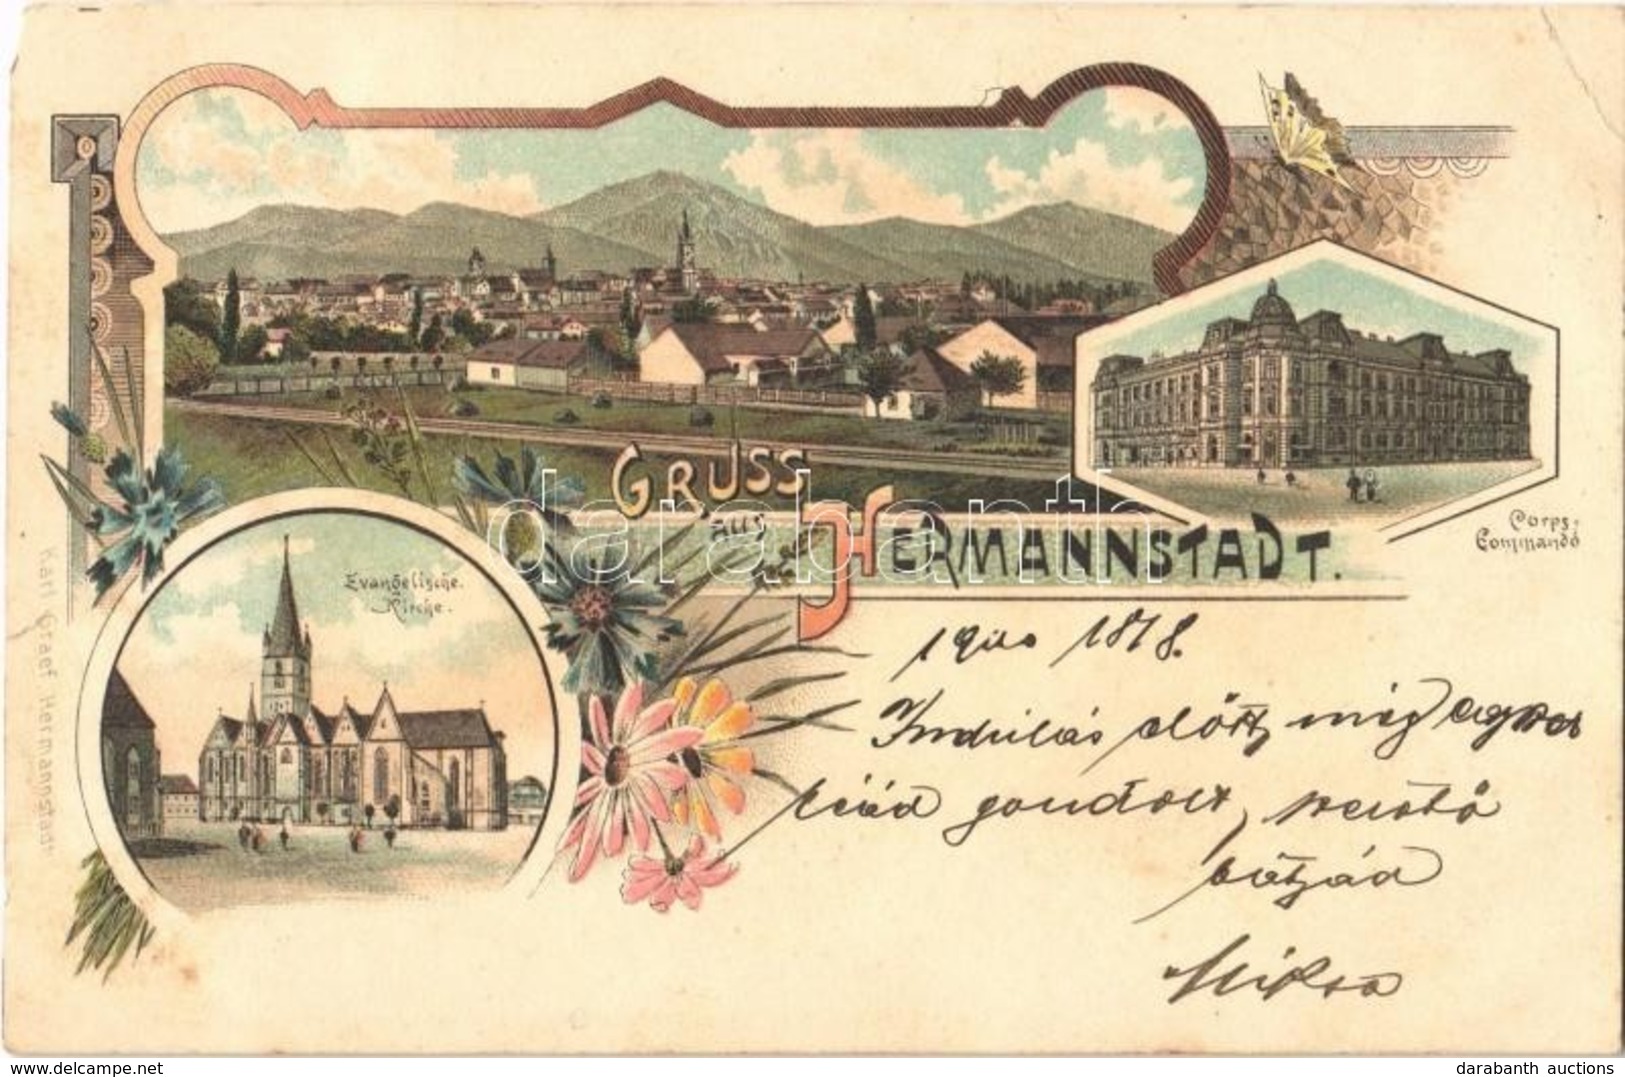 GRUSS
aus
HERMANNSTADT.
Corps-
Commando
Evangelische
Kirche.
Karl Graef Hermannstadt
1878.
Indulás előtt még egyszer
reád gondolt, szerető
bátyád
Miksa
darabanth
www.delcampe.net
darabanth auctions